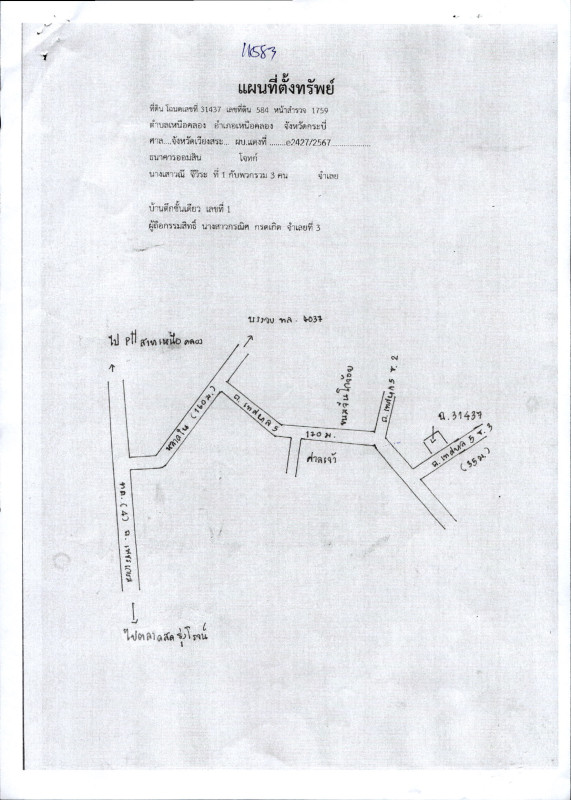 11583
แผนที่ตั้งทรัพย์
ที่ดิน โฉนดเลขที่ 31437 เลขที่ดิน 584 หน้าสำรวจ 1759
ตำบลเหนือคลอง อำเภอเหนือคลอง จังหวัดกระบี่
ศาล....จังหวัดเวียงสระ... ผบ.แดงที่ ........e2427/2567...................
ธนาคารออมสิน โจทก์
นางเสาวณี จีวีระ ที่ 1 กับพวกรวม 3 คน จำเลย
บ้านตึกชั้นเดียว เลขที่ 1
ผู้ถือกรรมสิทธิ์ นางสาวกรณิศ กรดเกิด จำเลยที่ 3
บรรจบ ทล. 4037
ไป ptt สาขาเหนือคลอง
(160 ม.)
ถ. เทศบาล 5
170 ม.
ศาลเจ้า
ถ. เทศบาล 5 ซ. 2
ฉ. 31437
ถ. เทศบาล 5 ซ. 3
(35 ม)
ทล. (4) ถ. เพชรเกษม
ไปตลาดสดรุ่งโรจน์